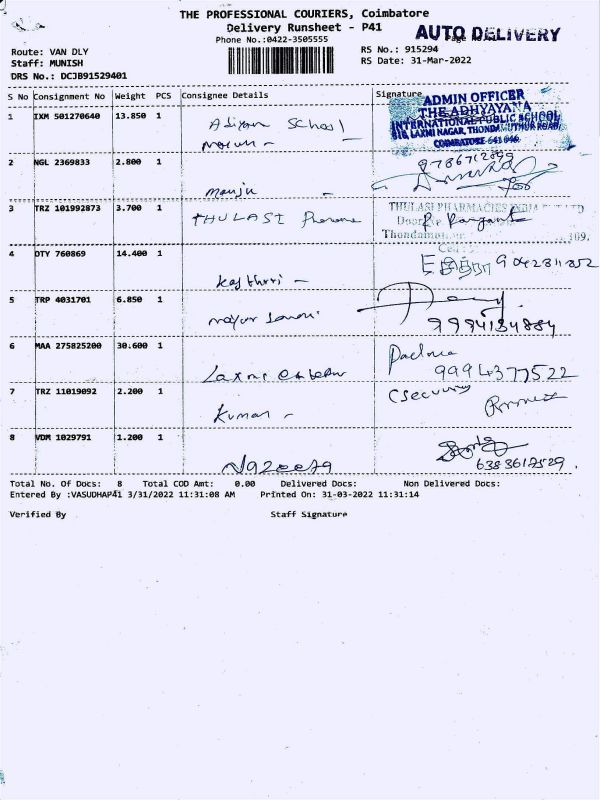 THE PROFESSIONAL COURIERS, Coimbatore
Delivery Runsheet - P41
AUTO DELIVERY
Phone No.:0422-3505555
Route: VAN DLY
RS No.: 915294
Staff: MUNISH
RS Date: 31-Mar-2022
DRS No.: DCJB91529401
S No Consignment No Weight PCS Consignee Details Signature
1 IXM 501270640 13.850 1 School
ADMIN OFFICER
THE ADHYAYANA
INTERNATIONAL PUBLIC SCHOOL
LAXMI NAGAR, THONDAMUTHUR ROAD
COIMBATORE-641 046
2 NGL 2369833 2.800 1 manju -
3 TRZ 101992873 3.700 1 THULASI
THULASI PHARMACIES INDIA
4 DTY 760869 14.400 1 Kasthuri -
5 TRP 4031701 6.850 1
9994134884
6 MAA 275825200 30.600 1 Laxmi
9994377522
7 TRZ 11019092 2.200 1 Kumar -
8 VDM 1029791 1.200 1 Nazeera
6383617529.
Total No. Of Docs: 8 Total COD Amt: 0.00 Delivered Docs: Non Delivered Docs:
Entered By :VASUDHAP41 3/31/2022 11:31:08 AM Printed On: 31-03-2022 11:31:14
Verified By Staff Signature